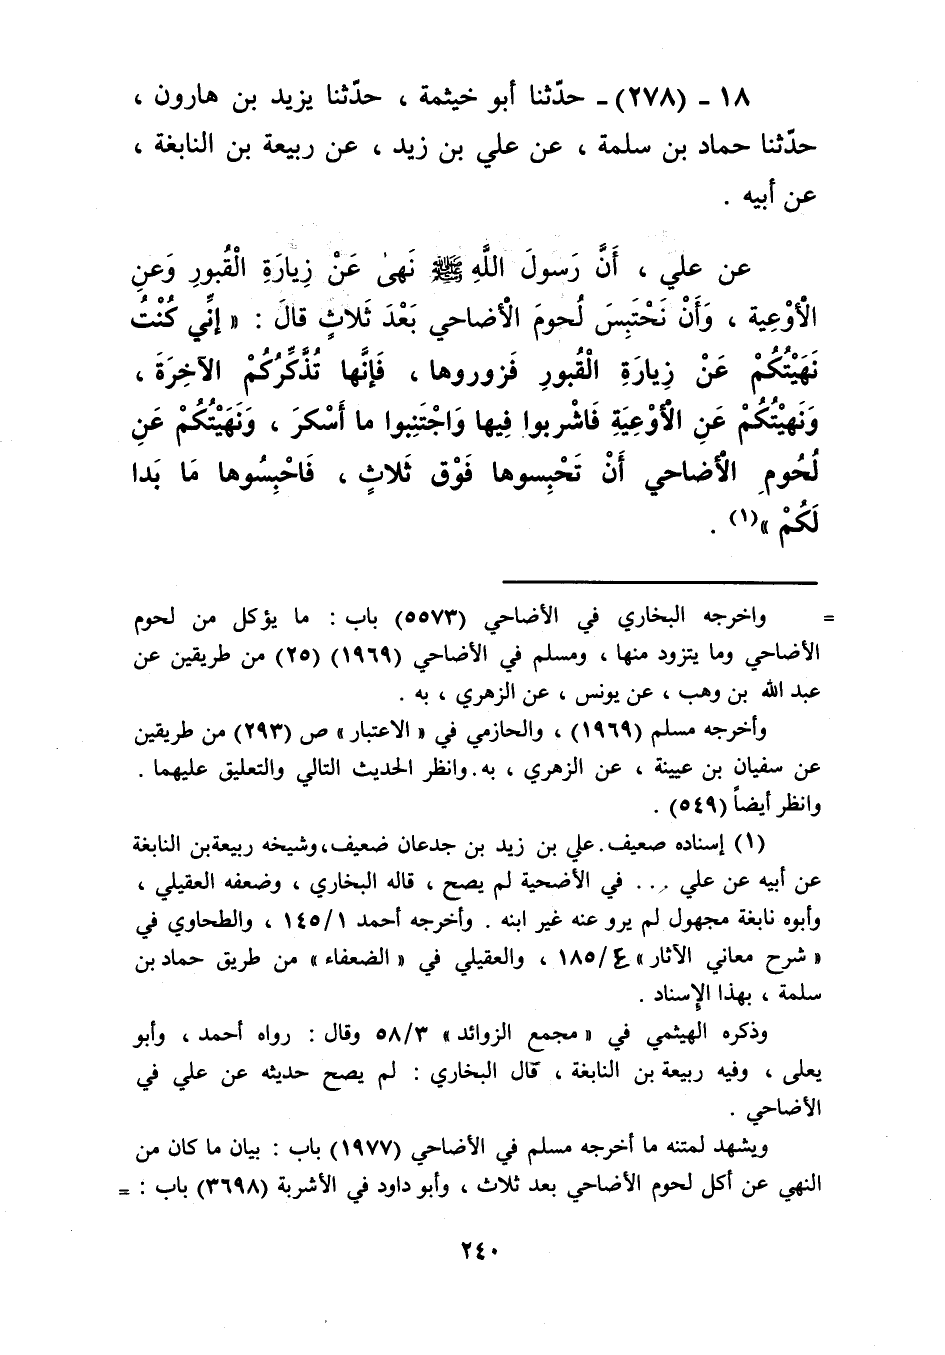 ١٨ - (٢٧٨) - حدّثنا أبو خيثمة ، حدّثنا يزيد بن هارون ،
حدّثنا حماد بن سلمة ، عن علي بن زيد ، عن ربيعة بن النابغة ،
عن أبيه .
عن علي ، أَنَّ رَسولَ اللَّهِ ﷺ نَهىٰ عَنْ زِيارَةِ الْقُبورِ وَعنِ
الْأوْعِية ، وَأَنْ نَحْتَبِسَ لُحومَ الْأضاحي بَعْدَ ثَلاثٍ قالَ : « إنِّي كُنْتُ
نَهَيْتُكُمْ عَنْ زِيارَةِ الْقُبورِ فَزوروها ، فَإنَّها تُذَكِّرُكُمْ الآخِرَةَ ،
وَنَهيْتُكُمْ عَنِ الْأوْعِيَةِ فَاشْربوا فِيها وَاجْتَنِبوا ما أَسْكرَ ، وَنَهَيْتُكُمْ عَنِ
لُحُومِ الْأضاحي أَنْ تَحْبِسوها فَوْق ثَلاثٍ ، فَاحْبِسُوها مَا بَدا
لَكُمْ »(١) .
= واخرجه البخاري في الأضاحي (٥٥٧٣) باب : ما يؤكل من لحوم
الأضاحي وما يتزود منها ، ومسلم في الأضاحي (١٩٦٩) (٢٥) من طريقين عن
عبد الله بن وهب ، عن يونس ، عن الزهري ، به .
وأخرجه مسلم (١٩٦٩) ، والحازمي في « الاعتبار » ص (٢٩٣) من طريقين
عن سفيان بن عيينة ، عن الزهري ، به . وانظر الحديث التالي والتعليق عليهما .
وانظر أيضاً (٥٤٩) .
(١) إسناده صعيف . علي بن زيد بن جدعان ضعيف ، وشيخه ربيعة بن النابغة
عن أبيه عن علي ... في الأضحية لم يصح ، قاله البخاري ، وضعفه العقيلي ،
وأبوه نابغة مجهول لم يرو عنه غير ابنه . وأخرجه أحمد ١٤٥/١ ، والطحاوي في
« شرح معاني الآثار » ٤/ ١٨٥ ، والعقيلي في « الضعفاء » من طريق حماد بن
سلمة ، بهذا الإسناد .
وذكره الهيثمي في « مجمع الزوائد » ٥٨/٣ وقال : رواه أحمد ، وأبو
يعلى ، وفيه ربيعة بن النابغة ، قال البخاري : لم يصح حديثه عن علي في
الأضاحي .
ويشهد لمتنه ما أخرجه مسلم في الأضاحي (١٩٧٧) باب : بيان ما كان من
النهي عن أكل لحوم الأضاحي بعد ثلاث ، وأبو داود في الأشربة (٣٦٩٨) باب : =
٢٤٠